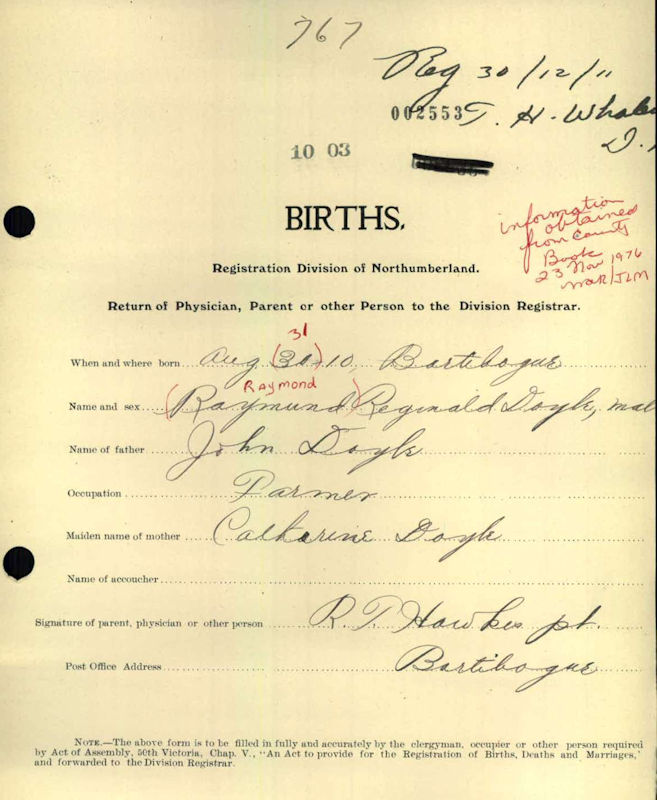 767
Reg 30/12/11
002553 T. H. Whale
D.
10 03
BIRTHS.
information
obtained
from County
Book
23 Nov 1976
Registration Division of Northumberland.
Return of Physician, Parent or other Person to the Division Registrar.
31
When and where born Aug (30) 10, Bartibogue
Raymond
Name and sex (Raymund) Reginald Doyle, mal
Name of father John Doyle
Occupation Farmer
Maiden name of mother Catharine Doyle
Name of accoucher
Signature of parent, physician or other person R. T. Hawkes pt.
Post Office Address Bartibogue
NOTE.—The above form is to be filled in fully and accurately by the clergyman, occupier or other person required
by Act of Assembly, 50th Victoria, Chap. V., "An Act to provide for the Registration of Births, Deaths and Marriages,'
and forwarded to the Division Registrar.